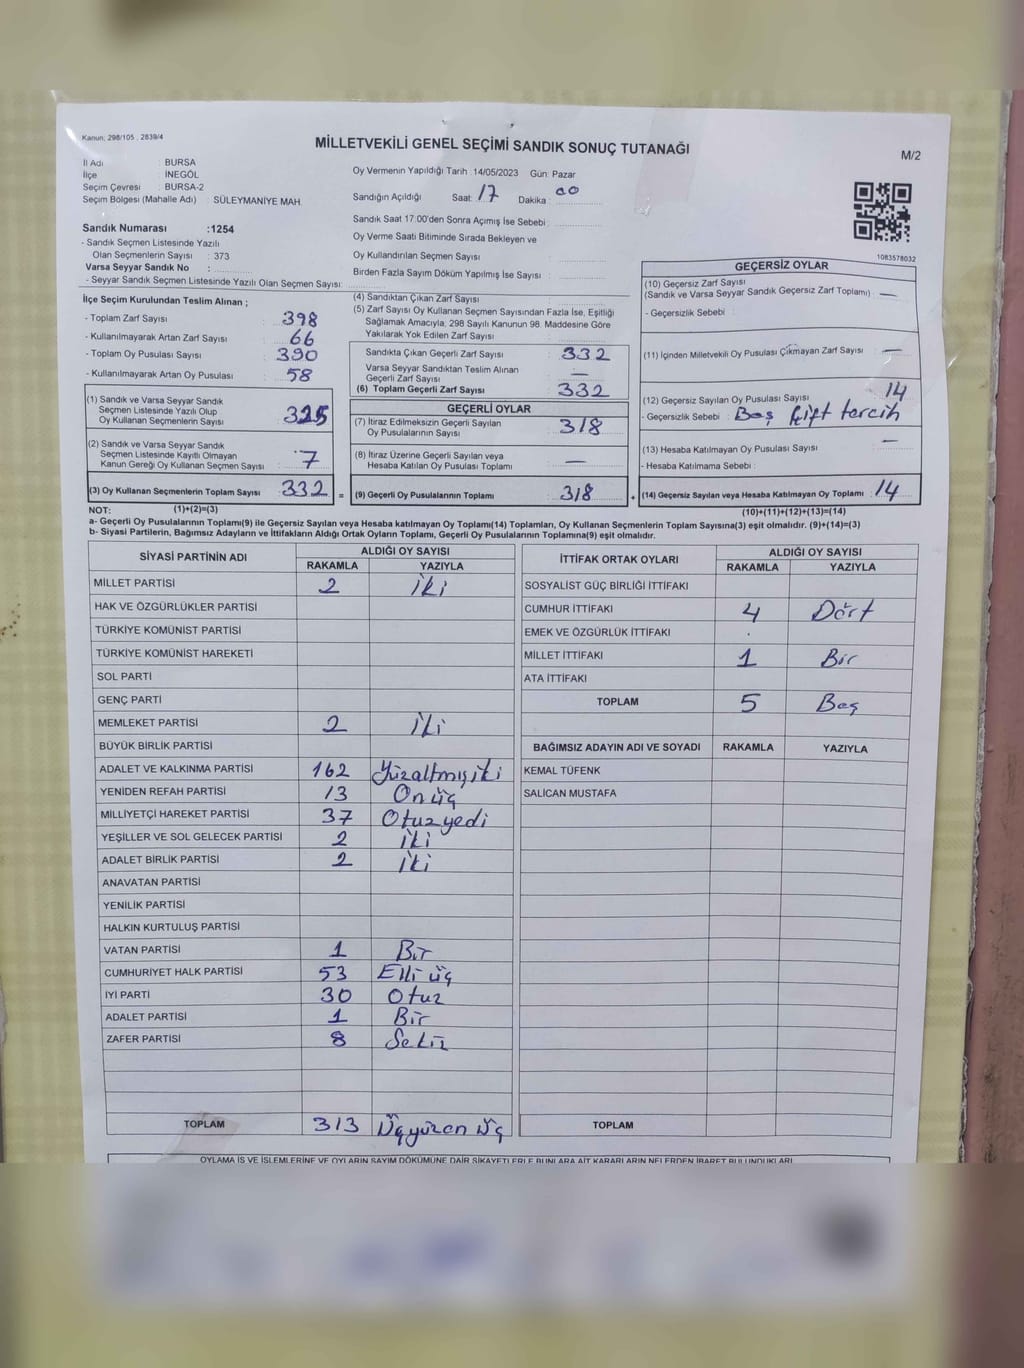 Kanun: 298/105 , 2839/4
MİLLETVEKİLİ GENEL SEÇİMİ SANDIK SONUÇ TUTANAĞI
M/2
İl Adı : BURSA
İlçe : İNEGÖL
Seçim Çevresi : BURSA-2
Seçim Bölgesi (Mahalle Adı) : SÜLEYMANİYE MAH.
Oy Vermenin Yapıldığı Tarih :14/05/2023 Gün: Pazar
Sandığın Açıldığı Saat: 17 Dakika : 00
Sandık Saat 17:00'den Sonra Açımış İse Sebebi :
Oy Verme Saati Bitiminde Sırada Bekleyen ve
Oy Kullandırılan Seçmen Sayısı :
Birden Fazla Sayım Döküm Yapılmış İse Sayısı :
Sandık Numarası :1254
- Sandık Seçmen Listesinde Yazılı
Olan Seçmenlerin Sayısı : 373
Varsa Seyyar Sandık No :
- Seyyar Sandık Seçmen Listesinde Yazılı Olan Seçmen Sayısı:
1083578032
İlçe Seçim Kurulundan Teslim Alınan ;
- Toplam Zarf Sayısı : 398
- Kullanılmayarak Artan Zarf Sayısı : 66
- Toplam Oy Pusulası Sayısı : 390
- Kullanılmayarak Artan Oy Pusulası : 58
(1) Sandık ve Varsa Seyyar Sandık
Seçmen Listesinde Yazılı Olup
Oy Kullanan Seçmenlerin Sayısı : 325
(2) Sandık ve Varsa Seyyar Sandık
Seçmen Listesinde Kayıtlı Olmayan
Kanun Gereği Oy Kullanan Seçmen Sayısı : 7
(3) Oy Kullanan Seçmenlerin Toplam Sayısı : 332 =
(4) Sandıktan Çıkan Zarf Sayısı :
(5) Zarf Sayısı Oy Kullanan Seçmen Sayısından Fazla İse, Eşitliği
Sağlamak Amacıyla, 298 Sayılı Kanunun 98. Maddesine Göre
Yakılarak Yok Edilen Zarf Sayısı :
Sandıkta Çıkan Geçerli Zarf Sayısı : 332
Varsa Seyyar Sandıktan Teslim Alınan
Geçerli Zarf Sayısı : —
(6) Toplam Geçerli Zarf Sayısı : 332
GEÇERLİ OYLAR
(7) İtiraz Edilmeksizin Geçerli Sayılan
Oy Pusulalarının Sayısı : 318
(8) İtiraz Üzerine Geçerli Sayılan veya
Hesaba Katılan Oy Pusulası Toplamı : —
(9) Geçerli Oy Pusulalarının Toplamı : 318 +
GEÇERSİZ OYLAR
(10) Geçersiz Zarf Sayısı
(Sandık ve Varsa Seyyar Sandık Geçersiz Zarf Toplamı) : —
- Geçersizlik Sebebi :
(11) İçinden Milletvekili Oy Pusulası Çıkmayan Zarf Sayısı : —
(12) Geçersiz Sayılan Oy Pusulası Sayısı : 14
- Geçersizlik Sebebi : Boş Çift tercih
(13) Hesaba Katılmayan Oy Pusulası Sayısı : —
- Hesaba Katılmama Sebebi :
(14) Geçersiz Sayılan veya Hesaba Katılmayan Oy Toplamı : 14
NOT: (1)+(2)=(3) (10)+(11)+(12)+(13)=(14)
a- Geçerli Oy Pusulalarının Toplamı(9) ile Geçersiz Sayılan veya Hesaba katılmayan Oy Toplamı(14) Toplamları, Oy Kullanan Seçmenlerin Toplam Sayısına(3) eşit olmalıdır. (9)+(14)=(3)
b- Siyasi Partilerin, Bağımsız Adayların ve İttifakların Aldığı Ortak Oyların Toplamı, Geçerli Oy Pusulalarının Toplamına(9) eşit olmalıdır.
SİYASİ PARTİNİN ADI ALDIĞI OY SAYISI
RAKAMLA YAZIYLA
MİLLET PARTİSİ 2 İki
HAK VE ÖZGÜRLÜKLER PARTİSİ
TÜRKİYE KOMÜNİST PARTİSİ
TÜRKİYE KOMÜNİST HAREKETİ
SOL PARTİ
GENÇ PARTİ
MEMLEKET PARTİSİ 2 İki
BÜYÜK BİRLİK PARTİSİ
ADALET VE KALKINMA PARTİSİ 162 Yüzaltmışiki
YENİDEN REFAH PARTİSİ 13 Onüç
MİLLİYETÇİ HAREKET PARTİSİ 37 Otuzyedi
YEŞİLLER VE SOL GELECEK PARTİSİ 2 İki
ADALET BİRLİK PARTİSİ 2 İki
ANAVATAN PARTİSİ
YENİLİK PARTİSİ
HALKIN KURTULUŞ PARTİSİ
VATAN PARTİSİ 1 Bir
CUMHURİYET HALK PARTİSİ 53 Elli üç
İYİ PARTİ 30 Otuz
ADALET PARTİSİ 1 Bir
ZAFER PARTİSİ 8 Sekiz
TOPLAM 313 Üçyüzon üç
İTTİFAK ORTAK OYLARI ALDIĞI OY SAYISI
RAKAMLA YAZIYLA
SOSYALİST GÜÇ BİRLİĞİ İTTİFAKI
CUMHUR İTTİFAKI 4 Dört
EMEK VE ÖZGÜRLÜK İTTİFAKI
MİLLET İTTİFAKI 1 Bir
ATA İTTİFAKI
TOPLAM 5 Beş
BAĞIMSIZ ADAYIN ADI VE SOYADI RAKAMLA YAZIYLA
KEMAL TÜFENK
SALİCAN MUSTAFA
TOPLAM
OYLAMA İŞ VE İŞLEMLERİNE VE OYLARIN SAYIM DÖKÜMÜNE DAİR ŞİKAYETLERLE BUNLARA AİT KARARLARIN NELERDEN İBARET BULUNDUKLARI